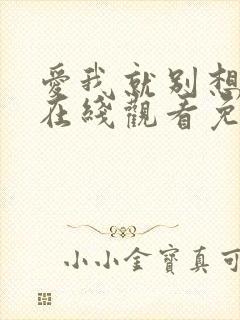 愛我就別想
在綫觀看免
小小金寶真可